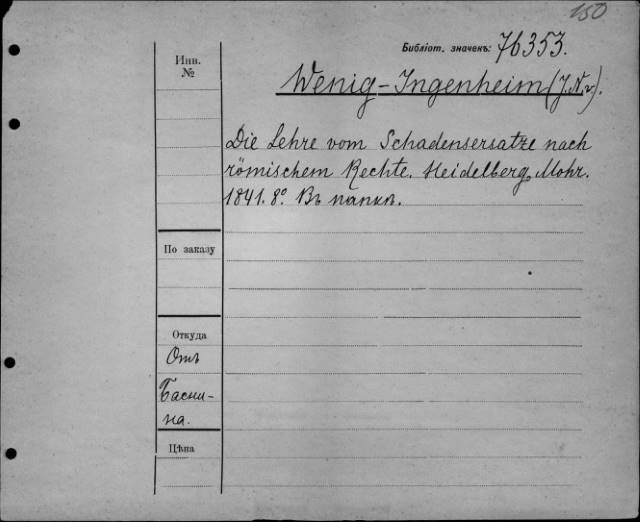 150
Библіот. значекъ: 76353.
Инв.
№
Wenig-Ingenheim (J. N. v.).
Die Lehre vom Schadensersatze nach
römischem Rechte. Heidelberg, Mohr.
1841. 8º. Въ папкѣ.
По заказу
Откуда
Отъ
Басни-
на.
Цѣна